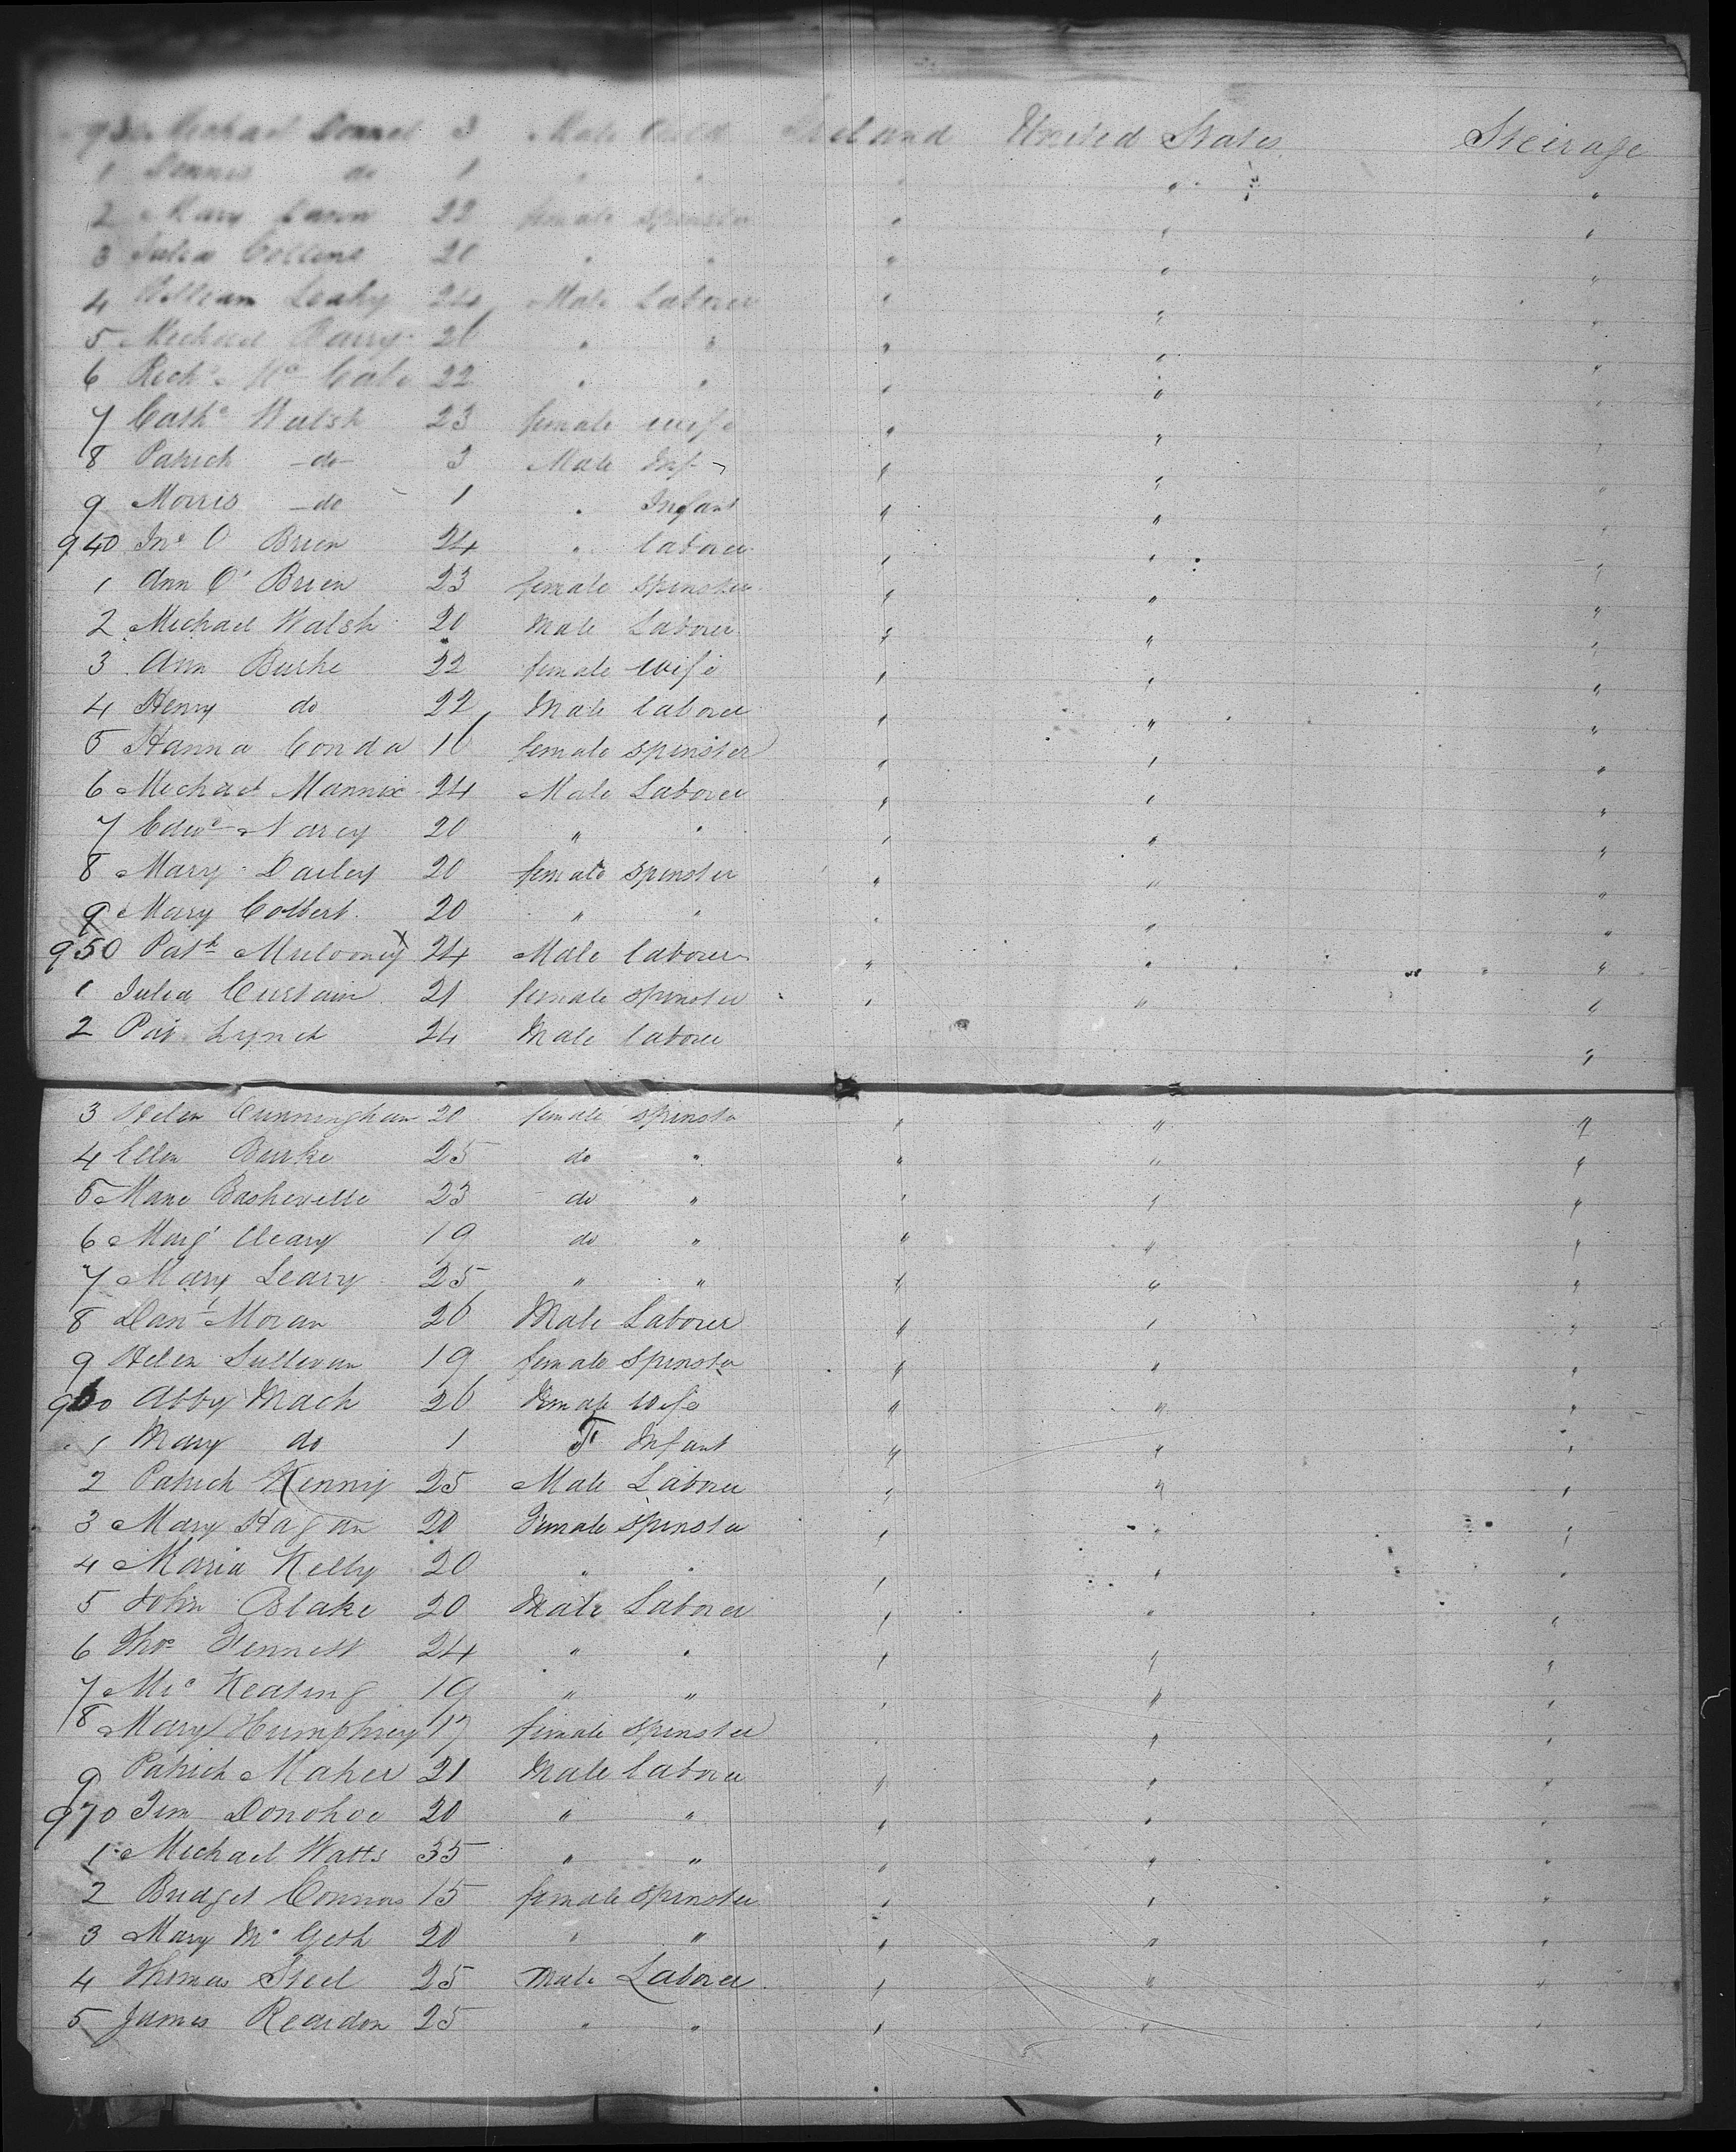 930 Michael Donnel 3 Male Child Ireland United States Steirage
1 Dennis do 1 " " " " "
2 Mary 22 female spinster " " "
3 Julia Collins 20 " " " " "
4 William Leahy 24 Male Laborer " " "
5 Michael Barry 26 " " " " "
6 Richd Mc Cabe 22 " " " " "
7 Cathe Walsh 23 female wife " " "
8 Patrick -do- 3 Male Inf " " "
9 Morris -do 1 " Infant " " "
940 Jno O Brien 24 " laborer " " "
1 Ann O'Brien 23 female spinster " " "
2 Michael Walsh 20 Male Laborer " " "
3 Ann Burke 22 female wife " " "
4 Henry do 22 Male laborer " " "
5 Hanna Conda 16 female spinster " " "
6 Michael Mannix 24 Male Laborer " " "
7 Edwd Narcy 20 " " " " "
8 Mary Dailey 20 female spinster " " "
9 Mary Colbert 20 " " " " "
950 Patk Mulooney 24 Male laborer " " "
1 Julia Curtain 21 female spinster " " "
2 Pat Lynch 24 Male laborer "
3 Helen Cunningham 20 female spinster " " "
4 Ellen Burke 25 do " " " "
5 Mane Baskeville 23 do " " " "
6 Margt Cleary 19 do " " " "
7 Mary Leary 25 " " " " "
8 Danl Moran 26 Male Laborer " " "
9 Helen Sullivan 19 female spinster " " "
960 Abby Mack 26 Female Wife " " "
1 Mary do 1 F Infant " " "
2 Patrick Kenny 25 Male Laborer " " "
3 Mary Hagan 20 Female Spinster " " "
4 Maria Kelly 20 " " " " "
5 John Blake 20 Male Laborer " " "
6 Thos Fennell 24 " " " " "
7 Mic Keating 19 " " " " "
8 Mary Humphrey 17 female spinster " " "
9 Patrick Maher 21 Male laborer " " "
970 Jim Donohoe 20 " " " " "
1 Michael Watts 35 " " " " "
2 Bridget Connors 15 female spinster " " "
3 Mary Mc Geth 20 " " " " "
4 Thomas Steel 25 Male Laborer " " "
5 James Reardon 25 " " " " "